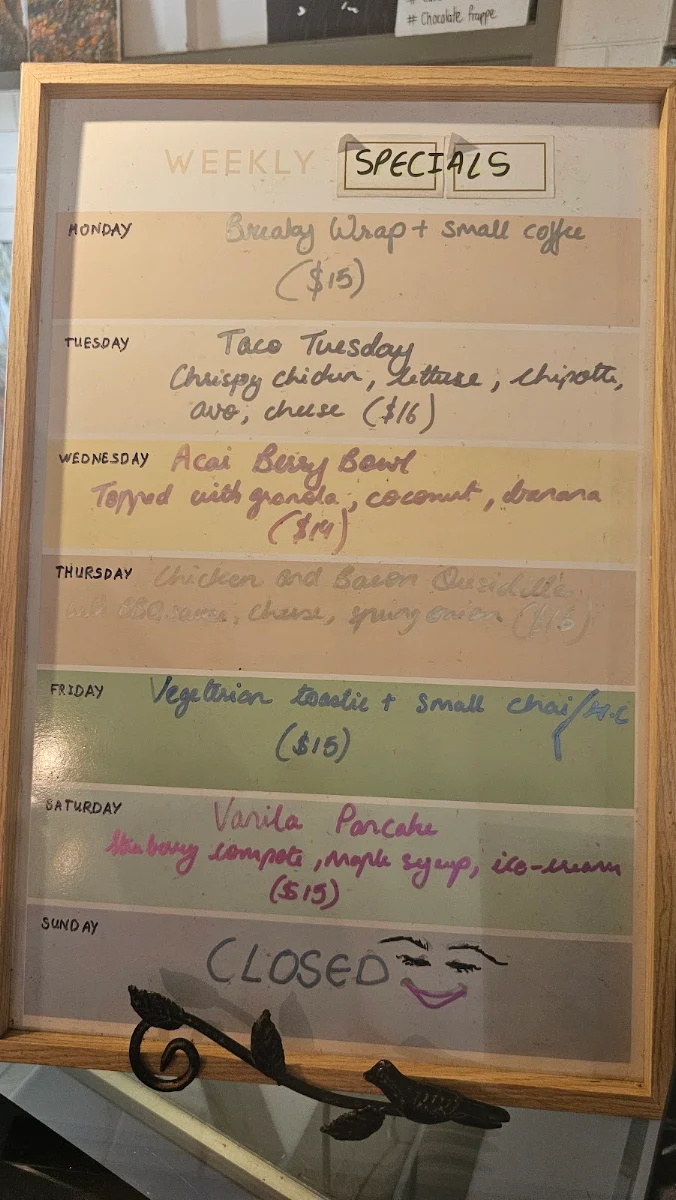 # Chocolate frappe
WEEKLY SPECIALS
MONDAY Breaky Wrap + small coffee
($15)
TUESDAY Taco Tuesday
Chrispy chicken, lettuse, chipotte,
avo, cheese ($16)
WEDNESDAY Acai Berry Bowl
Topped with granola, coconut, banana
($14)
THURSDAY Chicken and Bacon
BBQ sauce, cheese, spring onion
FRIDAY Vegeterian toastie + small chai/H.C
($15)
SATURDAY Vanila Pancake
compote, maple syrup, ice-cream
($15)
SUNDAY
CLOSED